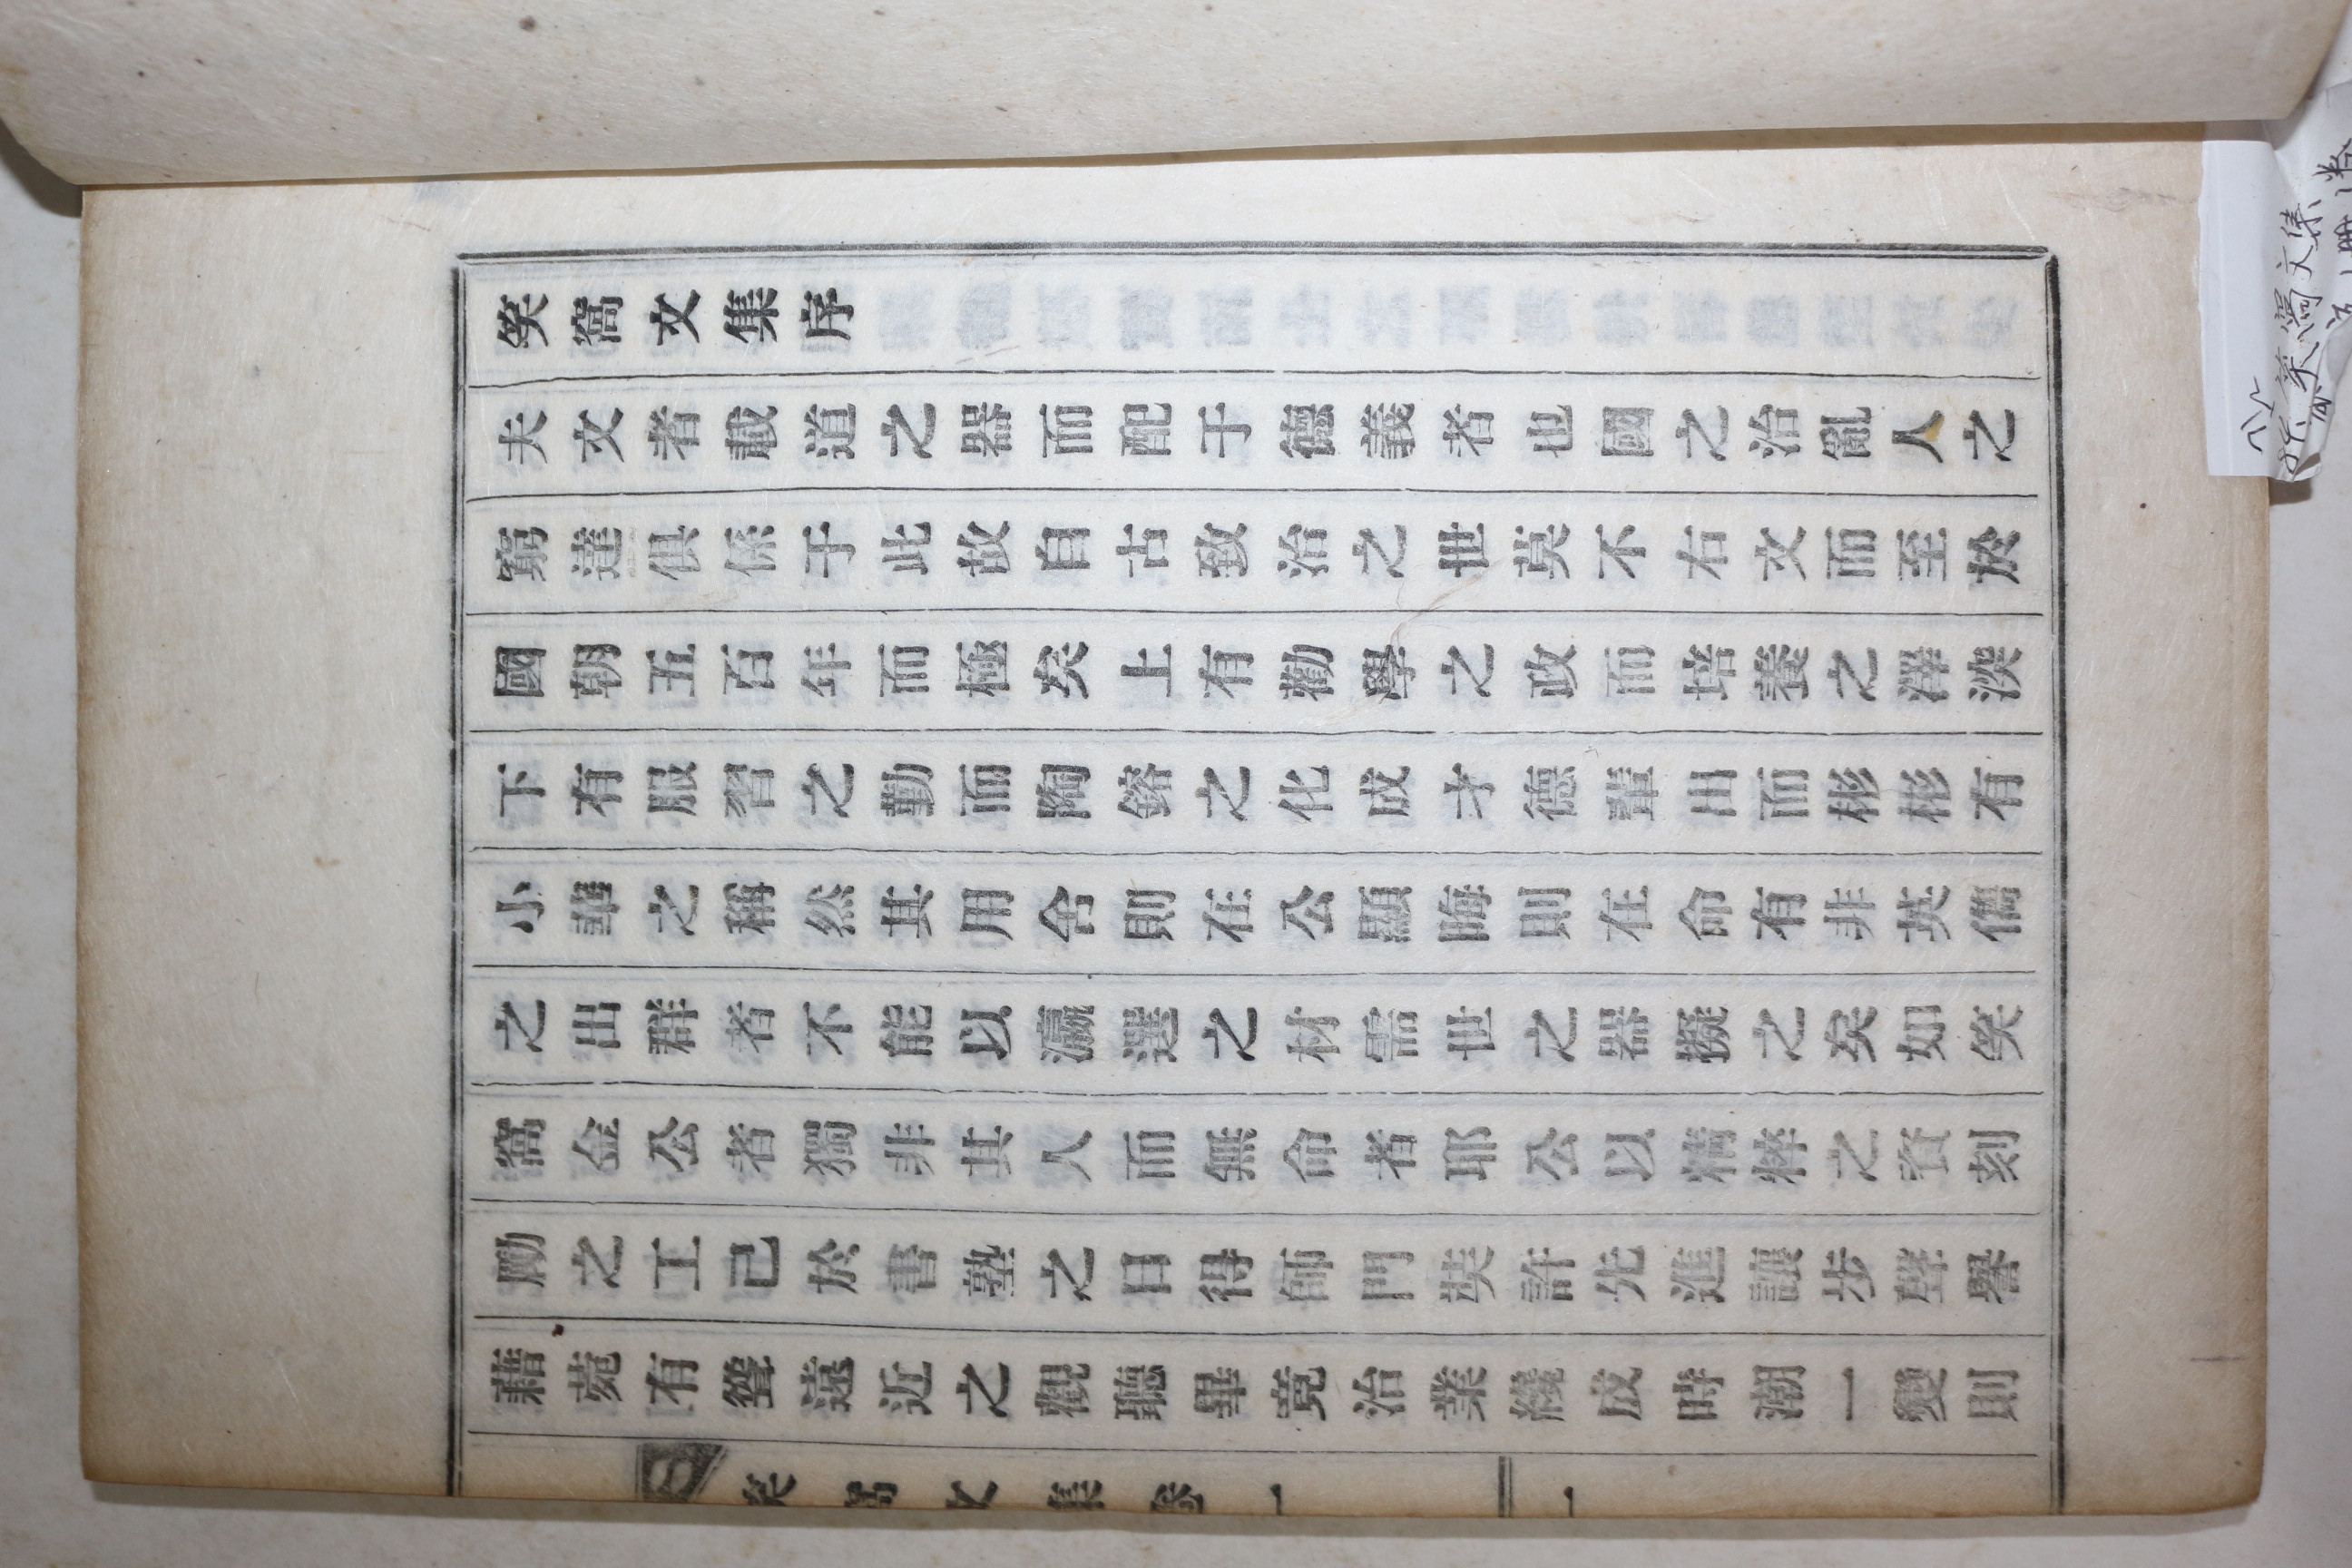 笑窩文集序
夫文者載道之器而配于德義者也國之治亂人之
窮達俱係于此故自古致治之世莫不右文而至於
國朝五百年而極矣上有勸學之政而培養之澤深
下有服習之勤而陶鎔之化成才德輩出而彬彬有
小華之稱然其用舍則在公顯晦則在命有非英儁
之出群者不能以瀛選之材需世之器擬之矣如笑
窩金公者獨非其人而無命者耶公以精粹之資刻
勵之工已於書塾之日得師門奘許先進讓步聲譽
藉菀有聳遠近之觀聽畢竟治業纔成時潮一變則
笑窩文集序 一
笑窩文集